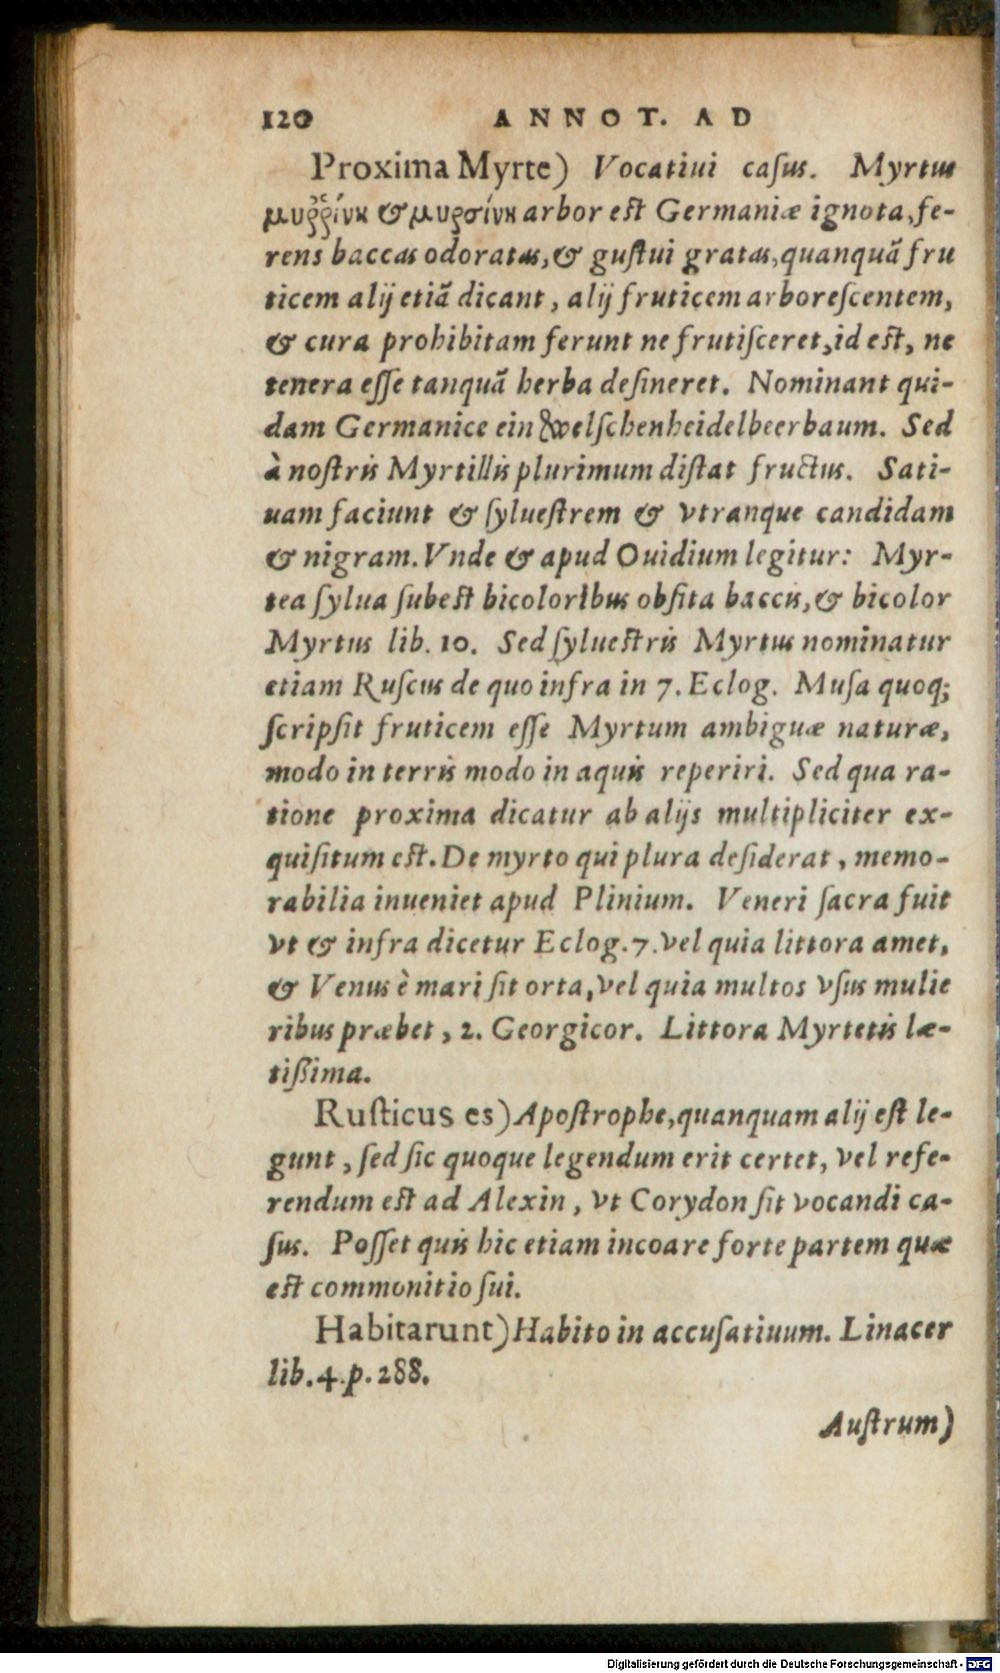 120 ANNOT. AD
Proxima Myrte) Vocatiui caſus. Myrtus
μυῤῥίνη & μυρσίνη arbor est Germaniæ ignota, fe-
rens baccas odoratas, & guſtui gratas, quanquã fru
ticem alij etiã dicant, alij fruticem arboreſcentem,
& cura prohibitam ferunt ne frutiſceret, id est, ne
tenera eſſe tanquã herba deſineret. Nominant qui-
dam Germanice ein welſchenheidelbeerbaum. Sed
à noſtris Myrtillis plurimum diſtat fructus. Sati-
uam faciunt & ſylueſtrem & vtranque candidam
& nigram. Vnde & apud Ouidium legitur: Myr-
tea ſylua ſubest bicoloribus obſita baccis, & bicolor
Myrtus lib. 10. Sed ſyluestris Myrtus nominatur
etiam Ruſcus de quo infra in 7. Eclog. Muſa quoq;
ſcripſit fruticem eſſe Myrtum ambiguæ naturæ,
modo in terris modo in aquis reperiri. Sed qua ra-
tione proxima dicatur ab alijs multipliciter ex-
quiſitum est. De myrto qui plura deſiderat, memo-
rabilia inueniet apud Plinium. Veneri ſacra fuit
vt & infra dicetur Eclog. 7. vel quia littora amet,
& Venus è mari ſit orta, vel quia multos vſus mulie
ribus præbet, 2. Georgicor. Littora Myrtetis læ-
tißima.
Ruſticus es) Apoſtrophe, quanquam alij eſt le-
gunt, ſed ſic quoque legendum erit certet, vel refe-
rendum est ad Alexin, vt Corydon ſit vocandi ca-
ſus. Poſſet quis hic etiam incoare forte partem quæ
est commonitio ſui.
Habitarunt) Habito in accuſatiuum. Linacer
lib. 4. p. 288.
Auſtrum)
Digitalisierung gefördert durch die Deutsche Forschungsgemeinschaft - DFG